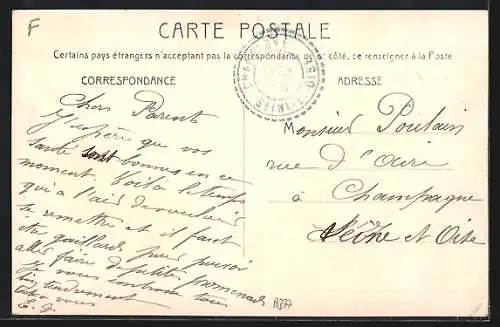 F
CARTE POSTALE
Certains pays étrangers n'acceptant pas la correspondance de ce côté, se renseigner à la Poste
CORRESPONDANCE
ADRESSE
Chers Parents
J'espère que vos
santé sont bonnes en ce
moment. Voilà le temps
qui a l'air de vouloir
se remettre et il faut
être gaillards pour pouvoir
aller faire de petites promenades
je vous embrasse tous
bien tendrement
Monsieur Poulain
rue d'
à Champagne
Seine et Oise
A377